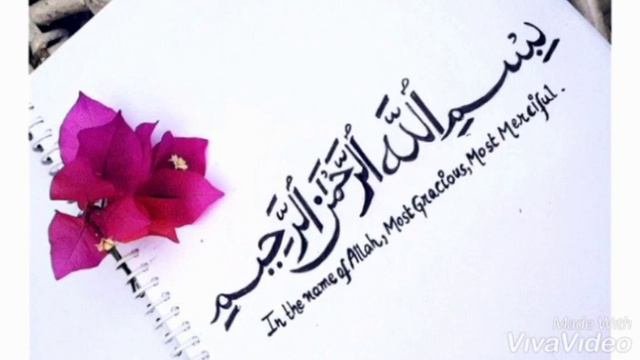 بِسْمِ اللَّهِ الرَّحْمَٰنِ الرَّحِيمِ
In the name of Allah, Most Gracious, Most Merciful.
Made With
VivaVideo